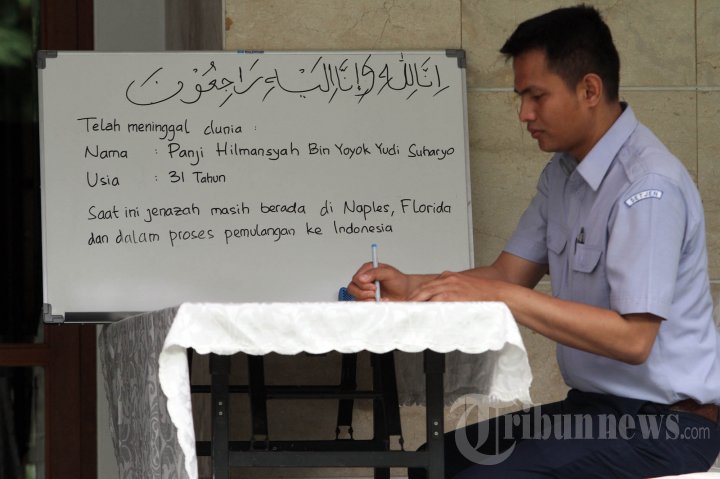 إنا لله وإنا إليه راجعون
Telah meninggal dunia :
Nama : Panji Hilmansyah Bin Yoyok Yudi Suharyo
Usia : 31 Tahun
Saat ini jenazah masih berada di Naples, Florida
dan dalam proses pemulangan ke Indonesia
SETJEN
Tribunnews.com